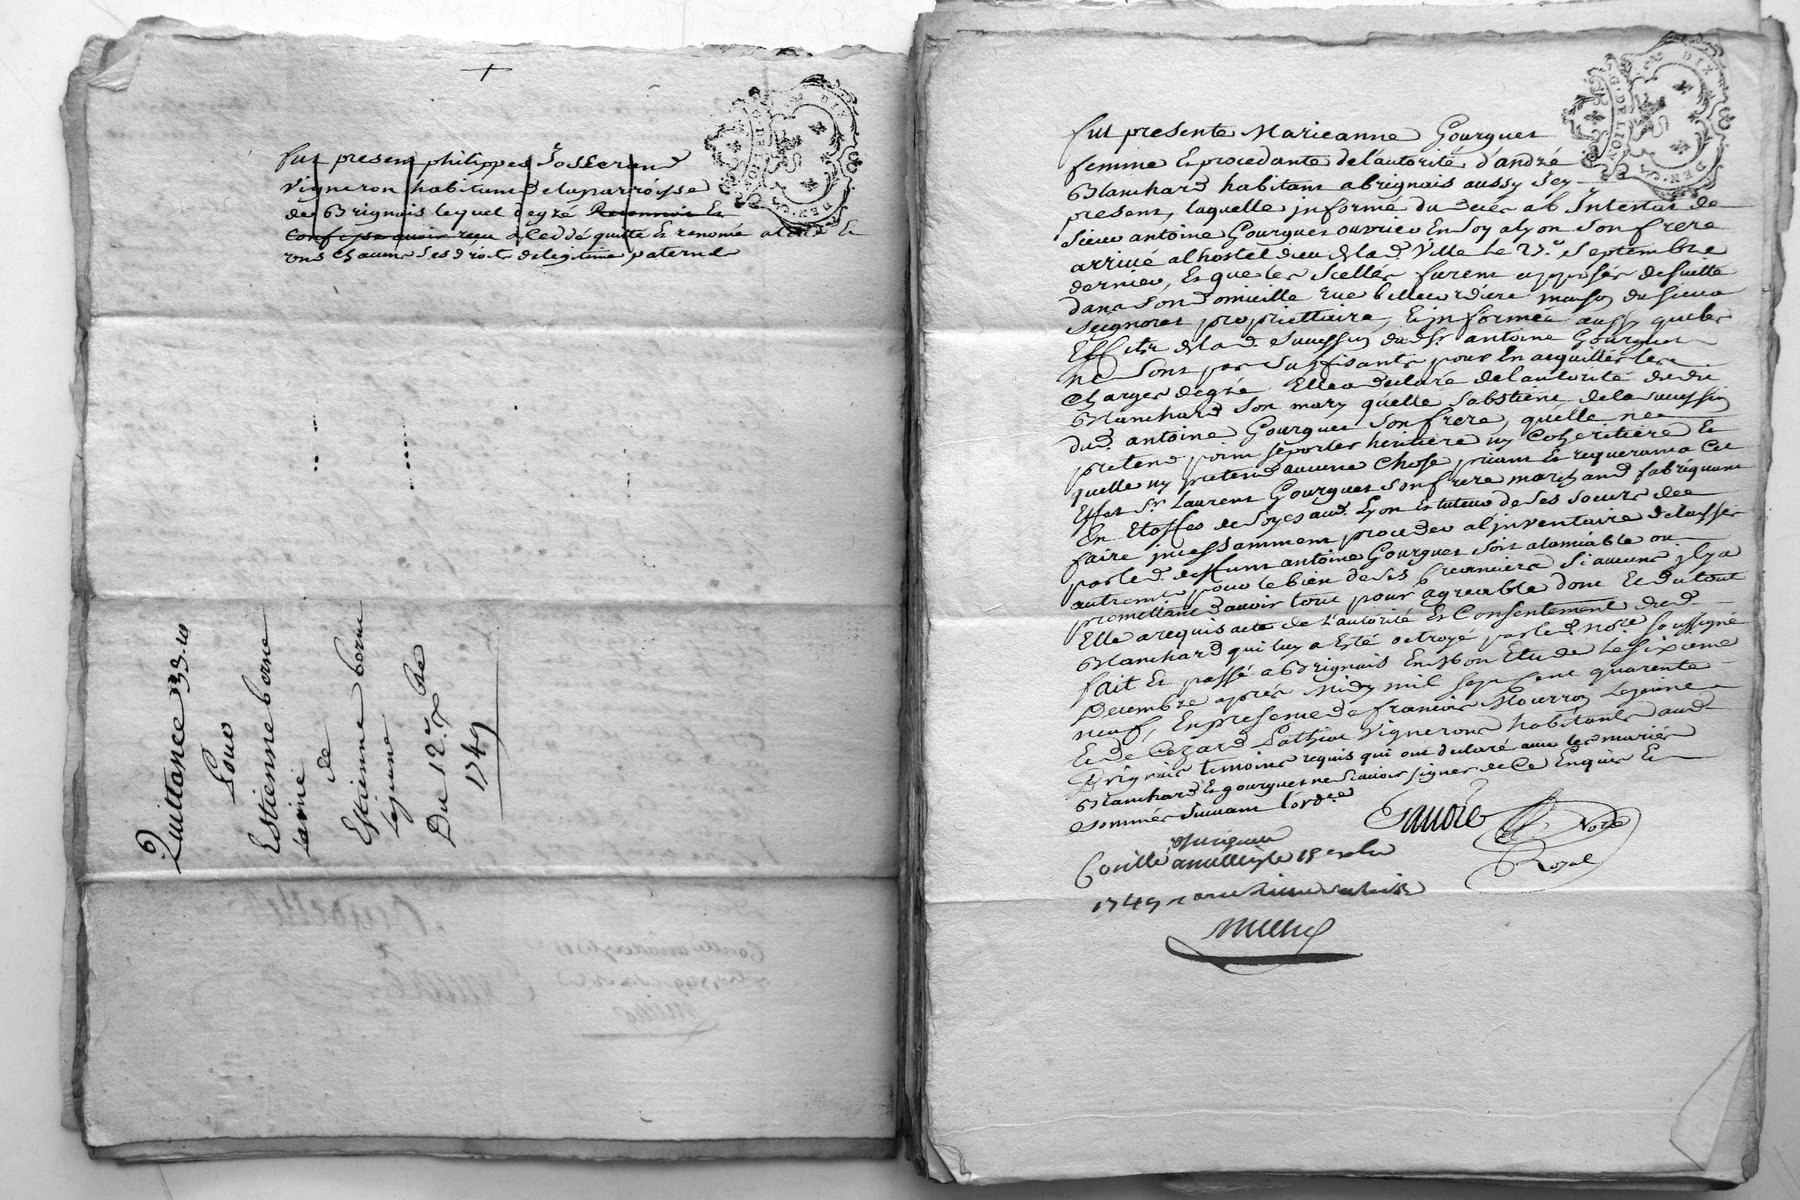 fut present philippes Josserand
vigneron habitant de la parroisse
de Brignais lequel degré Reconnoit Et
Confesse avoir reçu a Ceddé quitté Et renoncé a
ses droits de legitime paternel
DIX
DEN.
G. DE LYON
Quittance 33.
Pour
Estienne borne
de
Estienne borne
lejeune
Du 12e. Xbre
1749
DIX
DEN.
G. DE LION
fut presente Marieanne Gourguet
femme Et procedante de l'autorité d'andré
Blanchard habitant a brignais aussy Icy
present, laquelle informé du decés ab Intestat de
Sieur antoine Gourguet ouvrier En Soy a lyon Son frere
arrivé alhostel dieu de lad. Ville le 27e. Septembre
dernier, Et que les scelles furent apposés de suitte
dans Son domicille rue bellecordiere maison du Sieur
Seignoret proprietaire, Et informée aussy que les
Effets de lad. succession dud. Sr. antoine Gourguet
ne sont pas Suffisants pour En acquitter les
Charges degré Elle a declaré de l'autorité dudit
Blanchard Son mary quelle Sabstient de la succession
dud. antoine Gourguet Son frere, quelle ne
pretend point se porter heritiere ny Coheritiere Et
quelle ny pretend aucune Chose priant Et requerant a Cet
Effet Sr. Laurent Gourguet Son frere marchand fabriquant
En Etoffes de Soyes aud. Lyon Et tuteur de Ses soeurs de
faire incessamment proceder a l'inventaire delaissés
par led. deffunt antoine Gourguet soit a lamiable ou
autremt. pour le bien de Ses Creanciers si aucuns il y a
promettant d'avoir tout pour agreable dont Et du tout
Elle a requis acte de L'autorité Et Consentement dud.
Blanchard qui luy a Eté octroyé par led. Nore. soussigné
fait Et passé a Brignais En Mon Etude le sixieme
Decembre aprés Midy mil sept Cent quarente
neuf, En presence de francois Mourron Lejeune
Et de Cezard Vignerons habitants aud.
Brignais temoins requis qui ont declaré avec les mariés
Blanchard Et gourguet ne Scavoir signer de Ce Enquis Et
sommés Suivant l'ordce.
Nore
Royal
Conllé le 18
1749